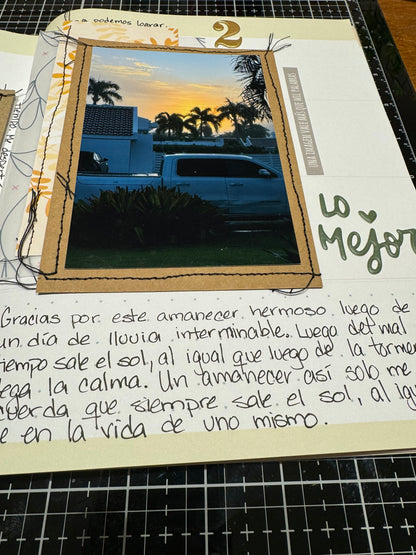 a podemos lograr.
2
UNA IMAGEN VALE MÁS QUE MIL PALABRAS
Lo
Mejor
Gracias por este amanecer hermoso luego de
un día de lluvia interminable. Luego del mal
tiempo sale el sol, al igual que luego de la tormen
lega la calma. Un amanecer así solo me
cuerda que siempre sale el sol, al igu
e en la vida de uno mismo.